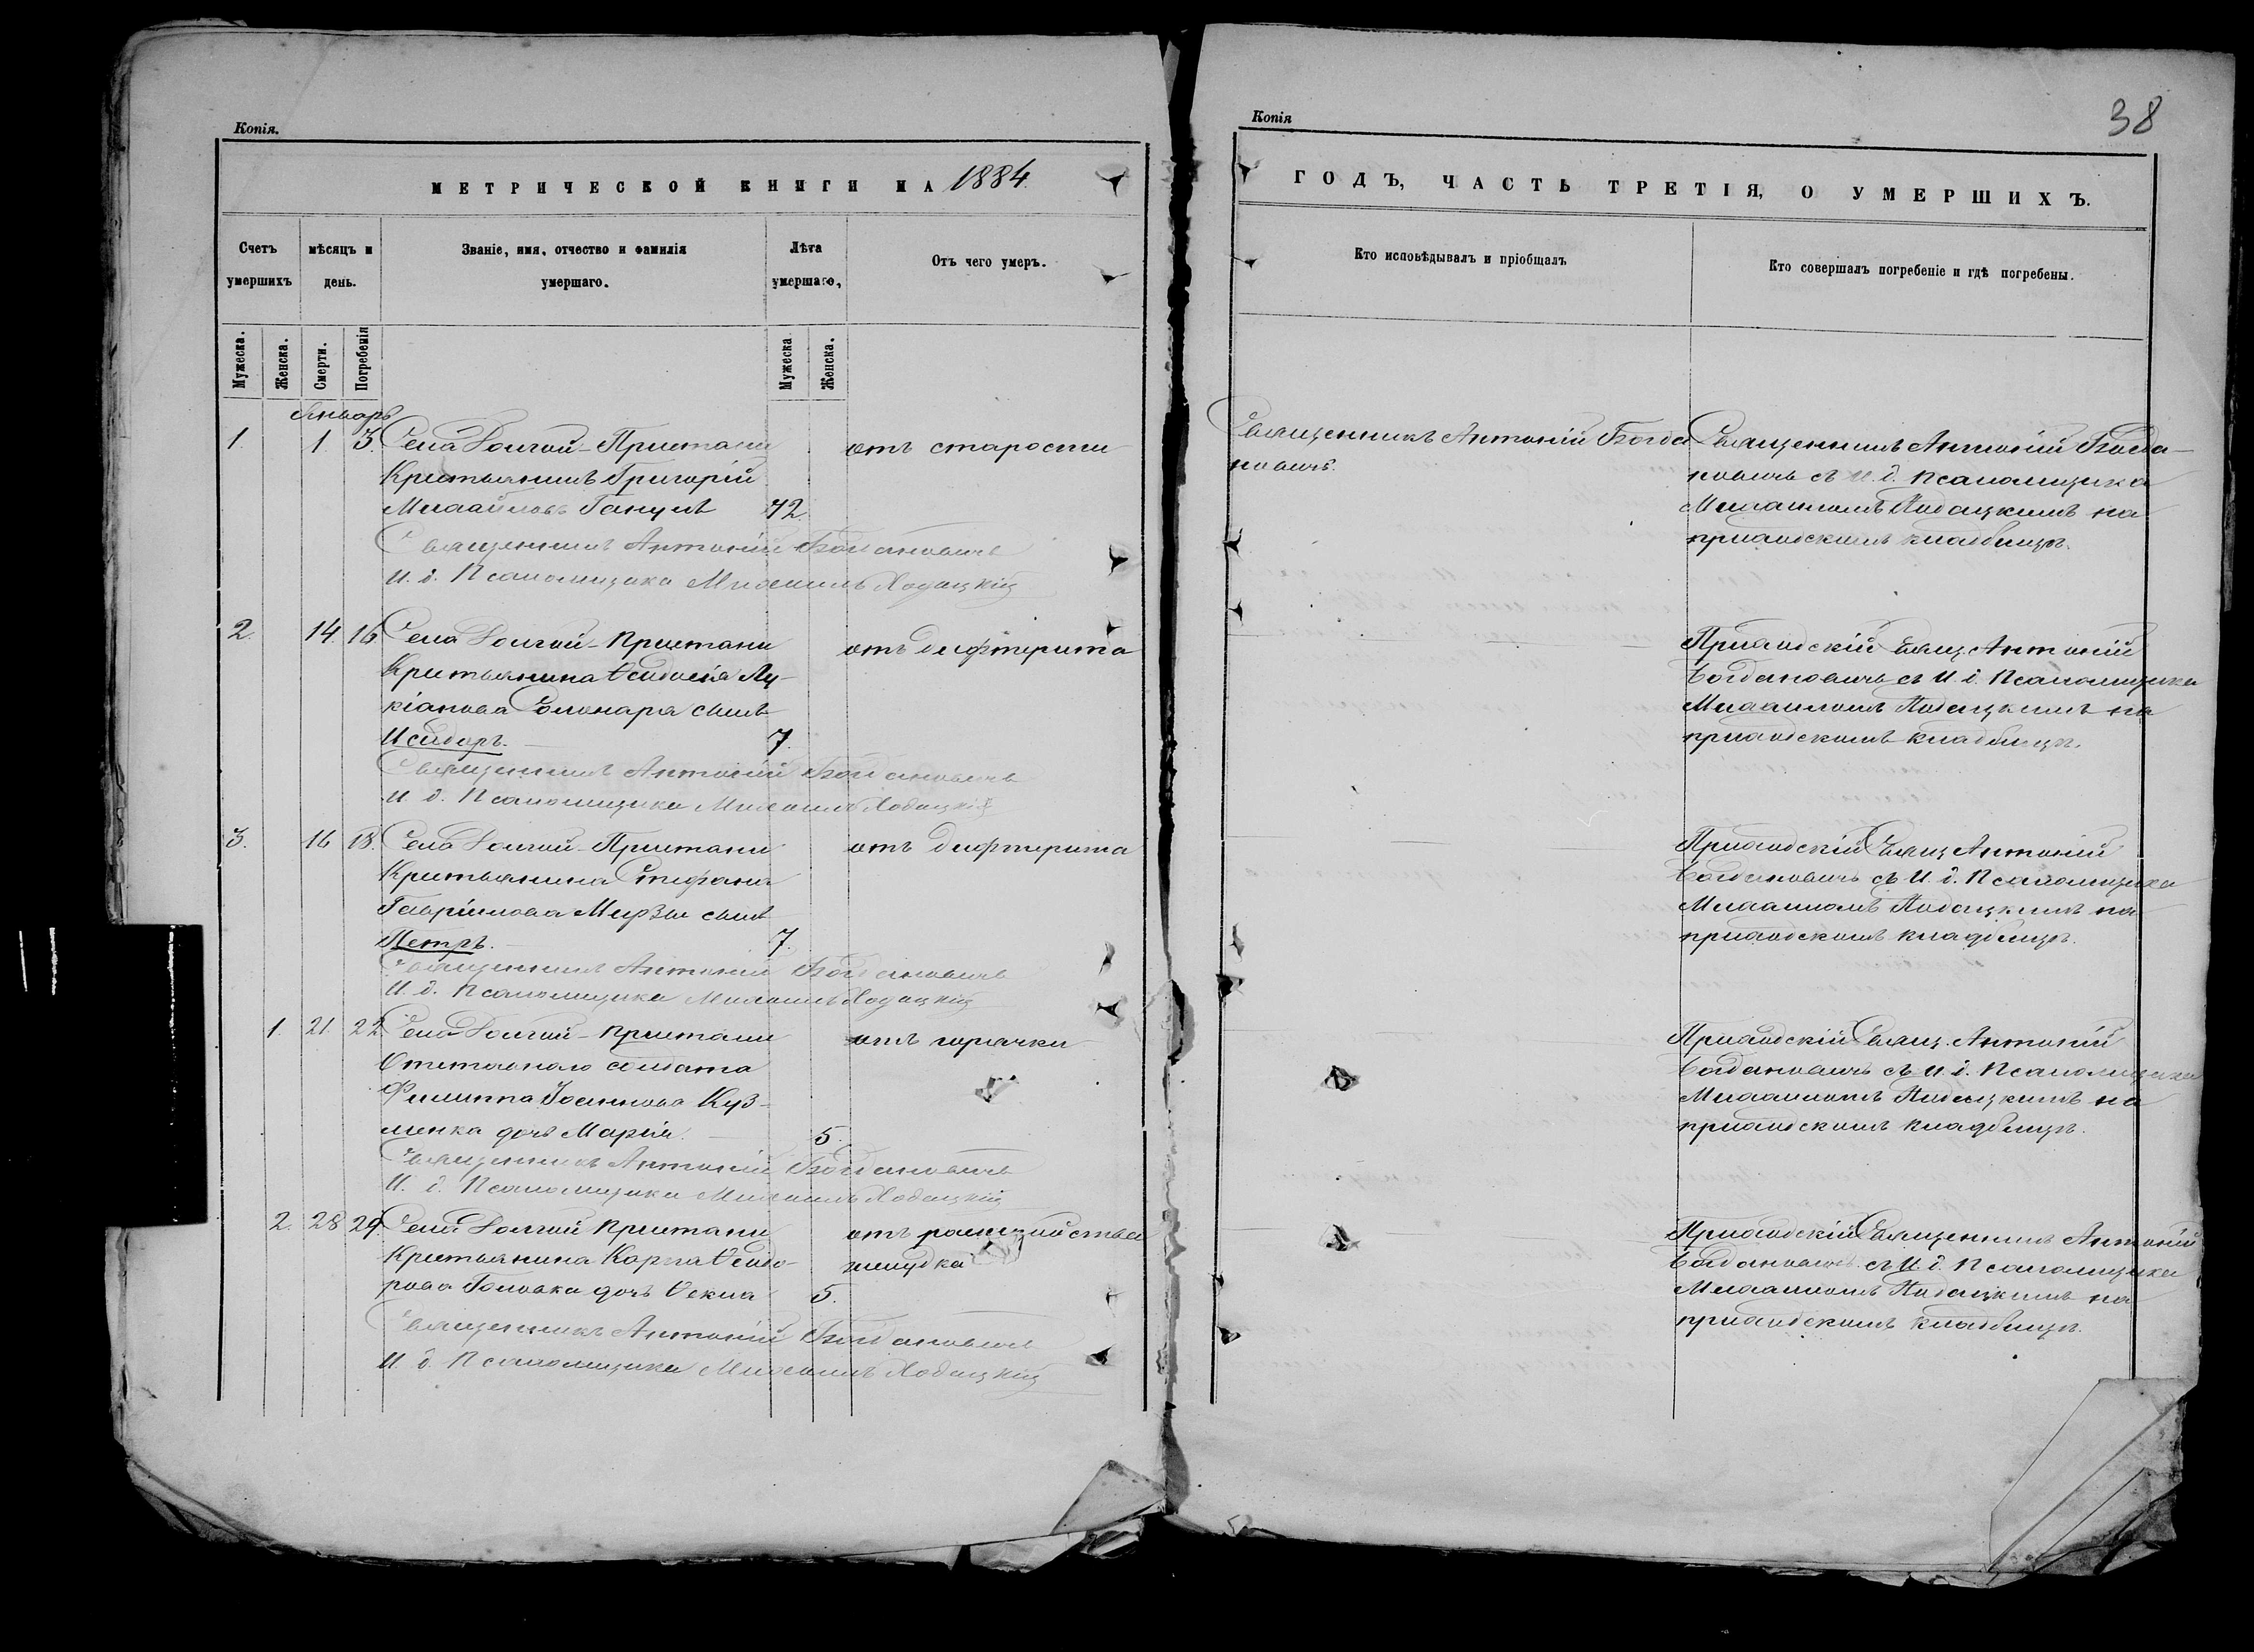 Копія.
МЕТРИЧЕСКОЙ КНИГИ НА 1884.
Счетъ умершихъ
мѣсяцъ и день.
Званіе, имя, отчество и фамилія умершаго.
Лѣта умершаго.
Отъ чего умеръ.
Мужеска.
Женска.
Смерти.
Погребенія
Мужеска
Женска.
Январь
1. 1 3. Села Долгой-Пристани отъ старости
Крестьянинъ Григорій
Михайловъ 72
Священникъ Антоній Богдановичъ
И. д. Псаломщика Михаилъ Ходацкій
2. 14. 16 Села Долгой-Пристани отъ дифтерита
Крестьянина Ѳеодосія Лу-
кіанова сынъ
Исидоръ. 7.
Священникъ Антоній Богдановичъ
И. д. Псаломщика Михаилъ Ходацкій
3. 16 18. Села Долгой-Пристани отъ дифтерита
Крестьянина Стефана
Гавріилова Мирзы сынъ
Петръ. 7.
Священникъ Антоній Богдановичъ
И. д. Псаломщика Михаилъ Ходацкій
1. 21. 22. Села Долгой-Пристани отъ горячки
Отставнаго солдата
Филиппа Іоаннова Куз-
менка дочь Марія. 5.
Священникъ Антоній Богдановичъ
И. д. Псаломщика Михаилъ Ходацкій
2. 28 29. Села Долгой Пристани отъ
Крестьянина Карпа Ѳеодо- желудка
рова Головка дочь Ѳекла 5.
Священникъ Антоній Богдановичъ
И. д. Псаломщика Михаилъ Ходацкій
Копія
38
ГОДЪ, ЧАСТЬ ТРЕТІЯ, О УМЕРШИХЪ.
Кто исповѣдывалъ и пріобщалъ
Кто совершалъ погребеніе и гдѣ погребены.
Священникъ Антоній Богда
новичъ.
Священникъ Антоній Богда-
новичъ съ И. д. Псаломщика
Михаиломъ Ходацкимъ на
приходскомъ кладбищѣ.
Приходскій Свящ. Антоній
Богдановичъ съ И. д. Псаломщика
Михаиломъ Ходацкимъ на
приходскомъ кладбищѣ.
Приходскій Свящ Антоній
Богдановичъ съ И. д. Псаломщика
Михаиломъ Ходацкимъ на
приходскомъ кладбищѣ.
Приходскій Свящ. Антоній
Богдановичъ съ И. д. Псаломщика
Михаиломъ Ходацкимъ на
приходскомъ кладбищѣ.
Приходскій Священникъ Антоній
Богдановичъ съ И. д. Псаломщика
Михаиломъ Ходацкимъ на
приходскомъ кладбищѣ.